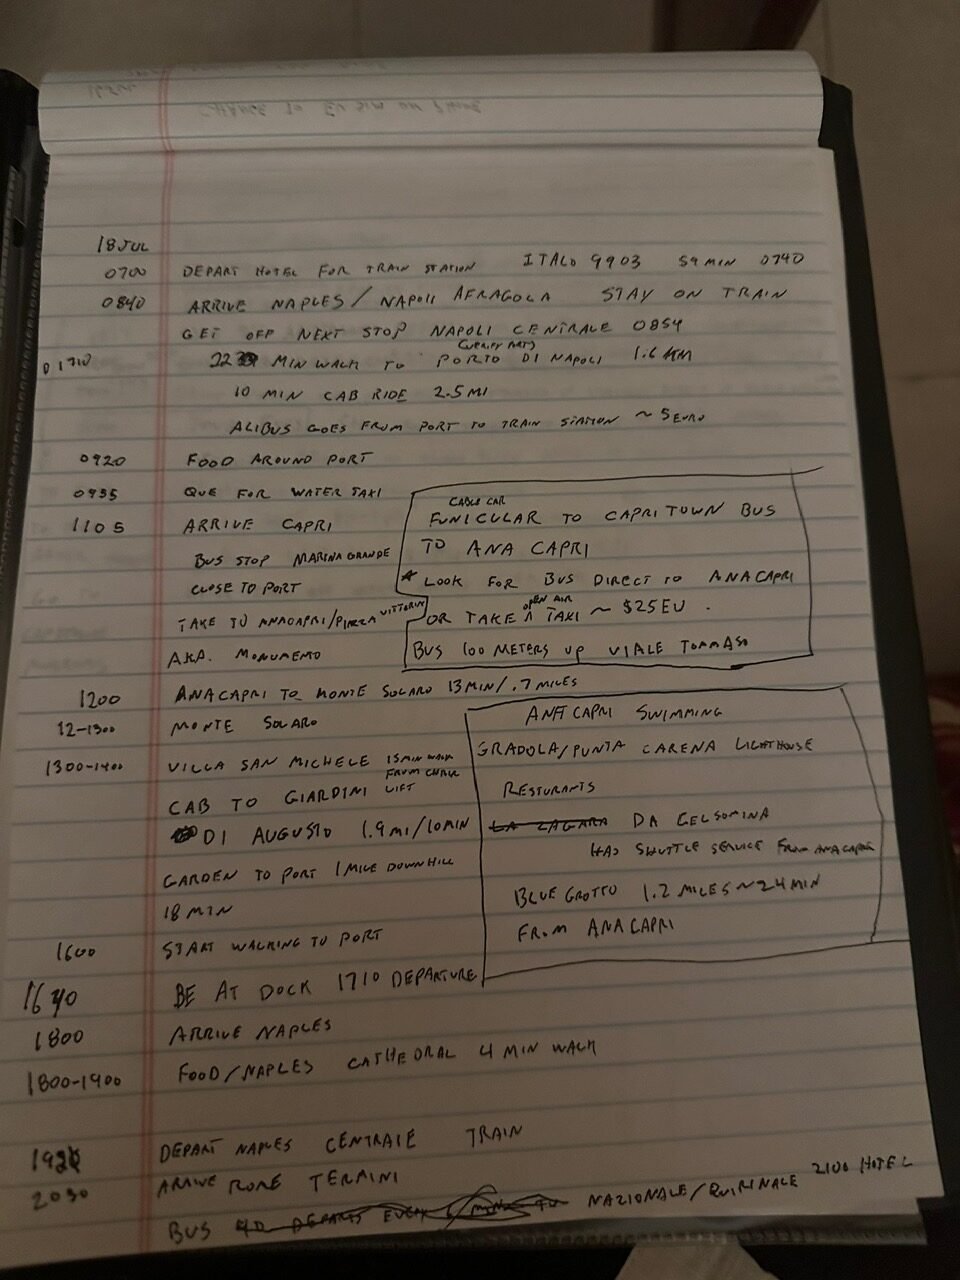 CHANGE TO EU SIM ON PHONE
18 JUL
0700 DEPART HOTEL FOR TRAIN STATION ITALO 9903 59 MIN 0740
0840 ARRIVE NAPLES/NAPOLI AFRAGOLA STAY ON TRAIN
GET OFF NEXT STOP NAPOLI CENTRALE 0854
22 MIN WALK TO PORTO DI NAPOLI 1.6 KM
10 MIN CAB RIDE 2.5 MI
ALIBUS GOES FROM PORT TO TRAIN STATION ~ 5 EURO
0920 FOOD AROUND PORT
0935 QUE FOR WATER TAXI
1105 ARRIVE CAPRI
BUS STOP MARINA GRANDE
CLOSE TO PORT
TAKE TO ANACAPRI/PIAZZA VITTORIA
AKA. MONUMENTO
CABLE CAR
FUNICULAR TO CAPRI TOWN BUS
TO ANA CAPRI
* LOOK FOR BUS DIRECT TO ANACAPRI
OR TAKE OPEN AIR TAXI ~ $25 EU.
BUS 100 METERS UP VIALE TOMMASO
1200 ANACAPRI TO MONTE SOLARO 13 MIN/.7 MILES
12-1300 MONTE SOLARO
1300-1400 VILLA SAN MICHELE 15 MIN WALK
FROM CHAIR
CAB TO GIARDINI LIFT
DI AUGUSTO 1.9 MI/10 MIN
GARDEN TO PORT 1 MILE DOWNHILL
18 MIN
ANA CAPRI SWIMMING
GRADOLA/PUNTA CARENA LIGHTHOUSE
RESTURANTS
LA ZAGARA DA GELSOMINA
HAS SHUTTLE SERVICE FROM ANACAPRI
BLUE GROTTO 1.2 MILES ~ 24 MIN
FROM ANACAPRI
1600 START WALKING TO PORT
1640 BE AT DOCK 1710 DEPARTURE
1800 ARRIVE NAPLES
1800-1900 FOOD/NAPLES CATHEDRAL 4 MIN WALK
DEPART NAPLES CENTRALE TRAIN
2030 ARRIVE ROME TERMINI
BUS 40 DEPARTS EVERY MINS TO NAZIONALE/QUIRINALE 2100 HOTEL